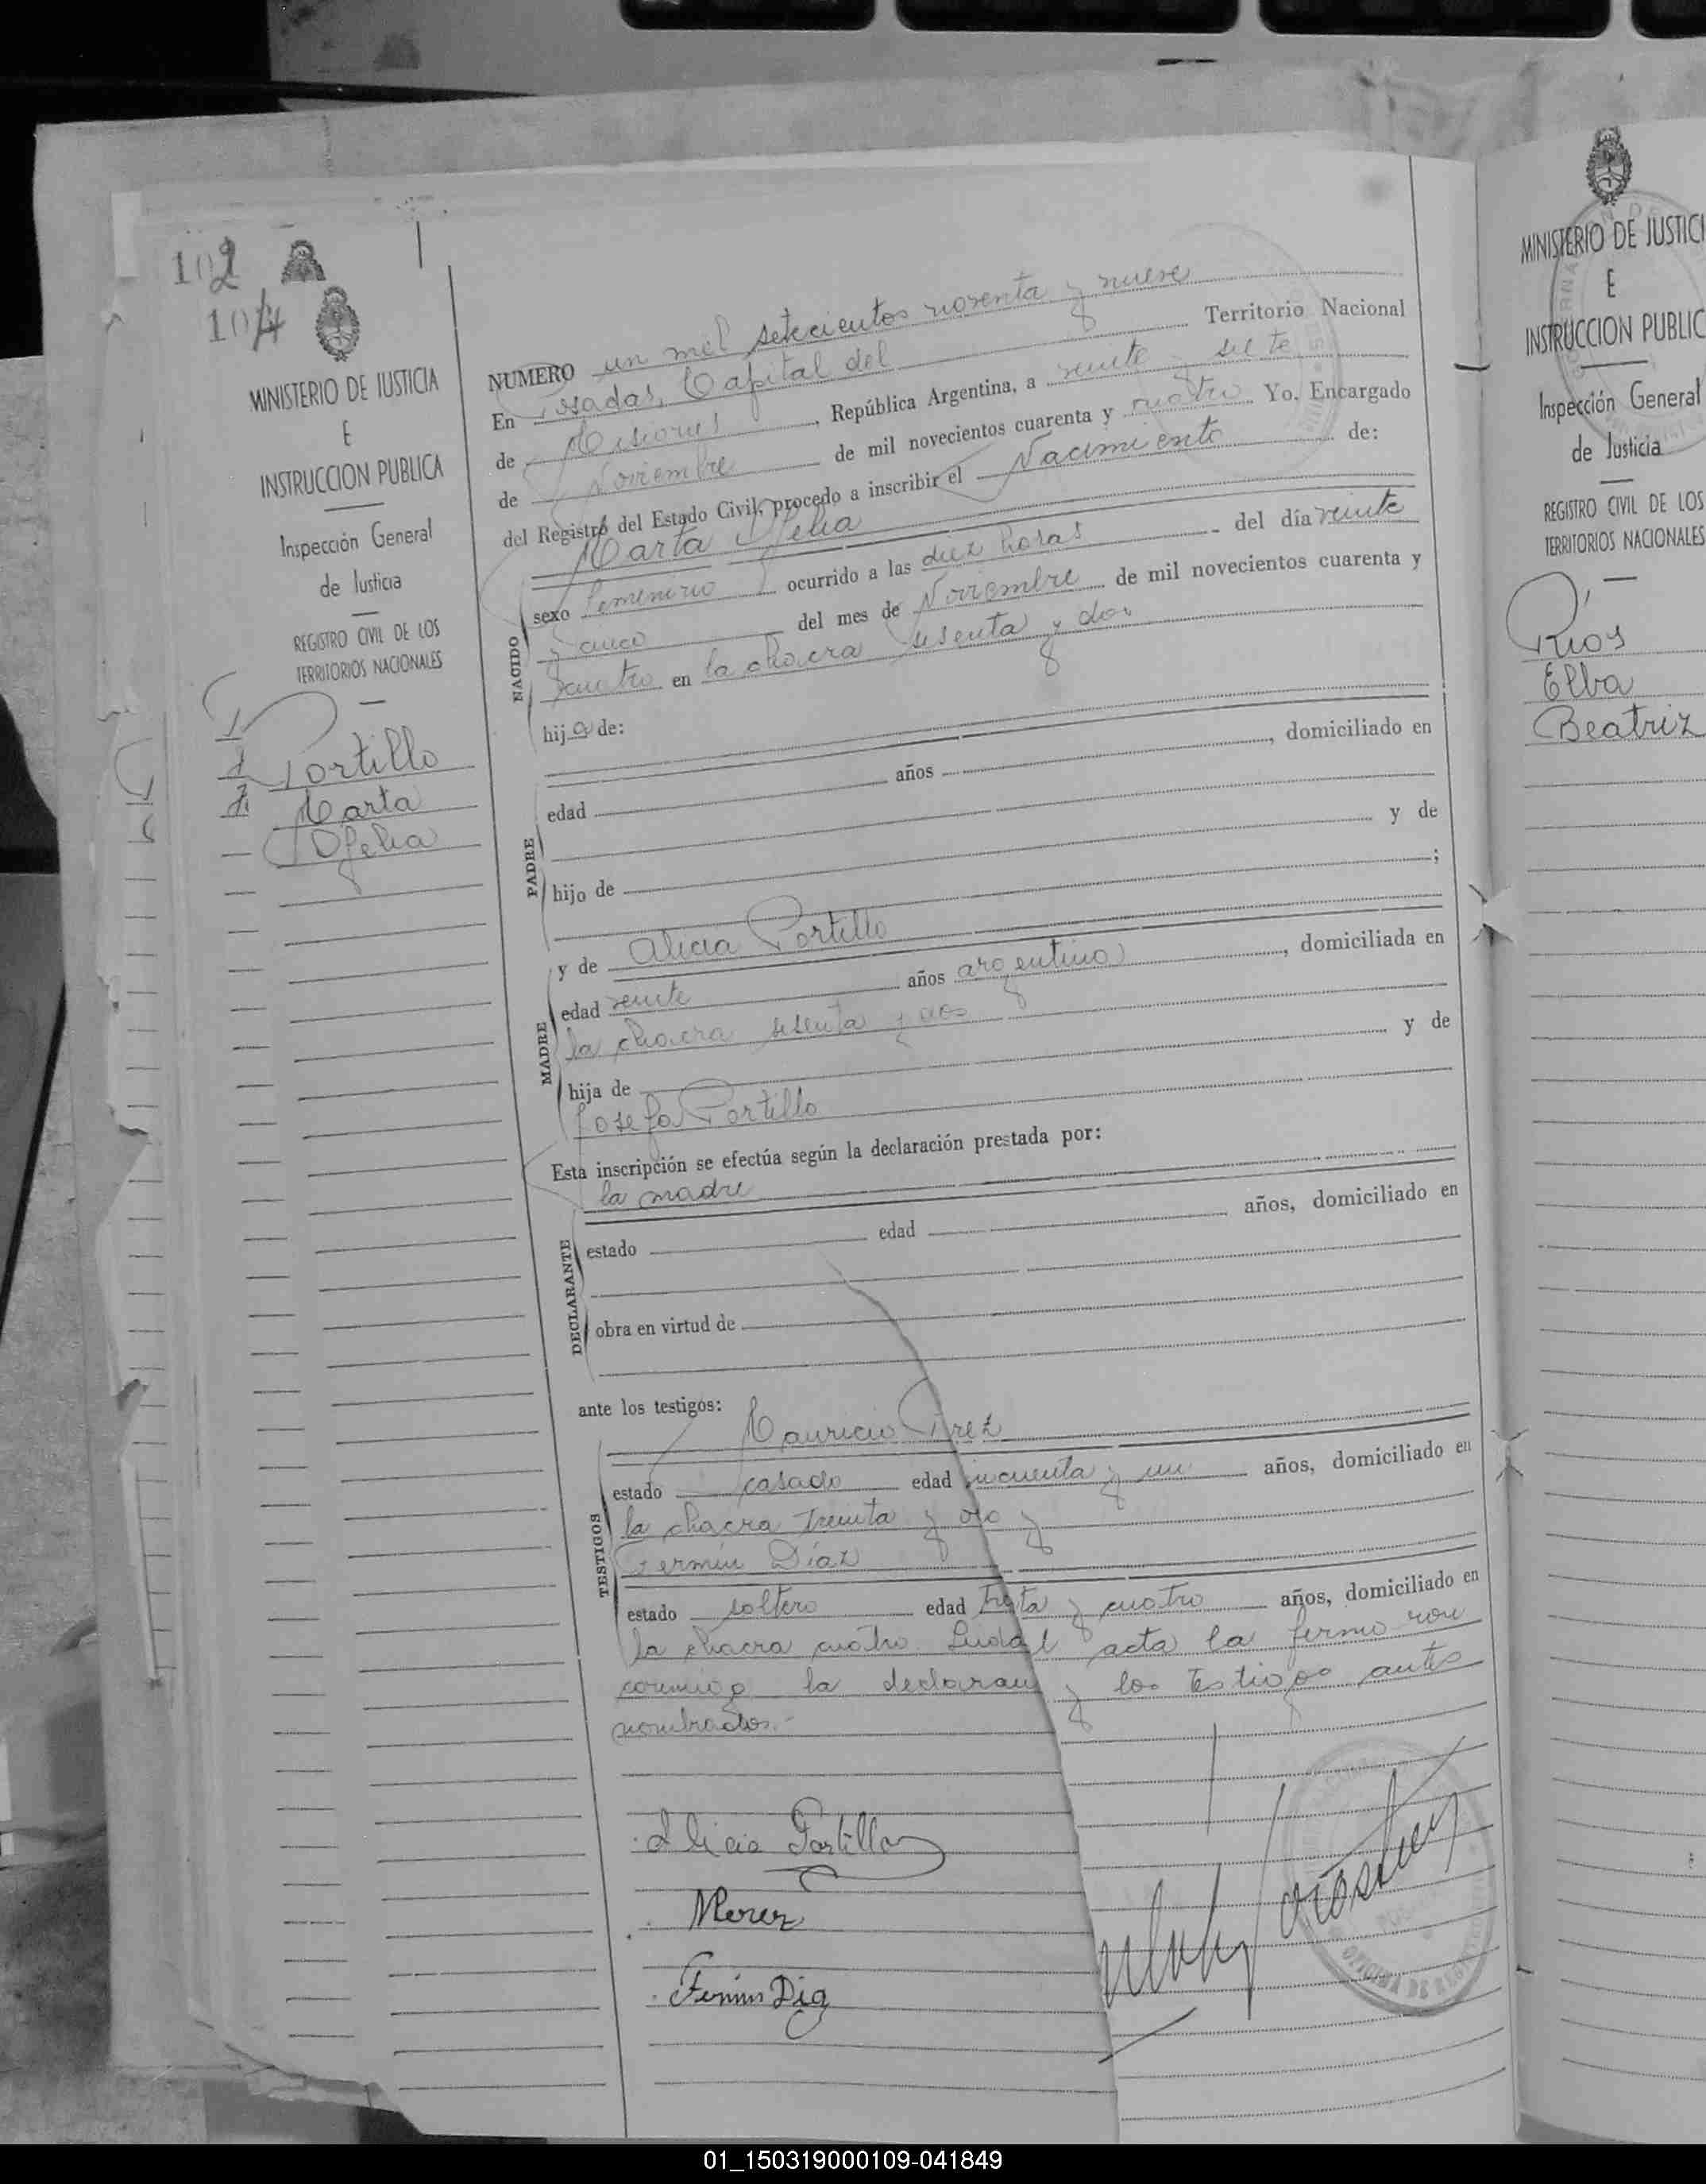 102
104
MINISTERIO DE JUSTICIA
E
INSTRUCCION PUBLICA
Inspección General
de Justicia
REGISTRO CIVIL DE LOS
TERRITORIOS NACIONALES
Portillo
Marta
Ofelia
NUMERO un mil setecientos noventa y nueve
En Posadas, Capital del Territorio Nacional
de Misiones, República Argentina, a veinte y siete
de Noviembre de mil novecientos cuarenta y cuatro Yo, Encargado
del Registro del Estado Civil, procedo a inscribir el Nacimiento de:
Marta Ofelia
NACIDO
sexo femenino ocurrido a las diez horas del día veinte
y cinco del mes de Noviembre de mil novecientos cuarenta y
cuatro en la chacra sesenta y dos
hija de:
PADRE
edad años , domiciliado en
hijo de y de
;
y de Alicia Portillo
MADRE
edad veinte años argentina , domiciliada en
la chacra sesenta y dos
hija de y de
Josefa Portillo
Esta inscripción se efectúa según la declaración prestada por:
la madre
DECLARANTE
estado edad años, domiciliado en
obra en virtud de
ante los testigos:
Mauricio Perez
TESTIGOS
estado casado edad cincuenta y un años, domiciliado en
la chacra treinta y y
Fermín Díaz
estado soltero edad y cuatro años, domiciliado en
la chacra cuatro. acta la firma con
conmigo la declaran y los testigos antes
nombrados.-
Alicia Portillo
MPerez
Fermin Diaz
OFICINA DE
MINISTERIO DE JUSTICI
E
INSTRUCCION PUBLIC
Inspección General
de Justicia
REGISTRO CIVIL DE LOS
TERRITORIOS NACIONALES
Ríos
Elba
Beatriz
01_150319000109-041849